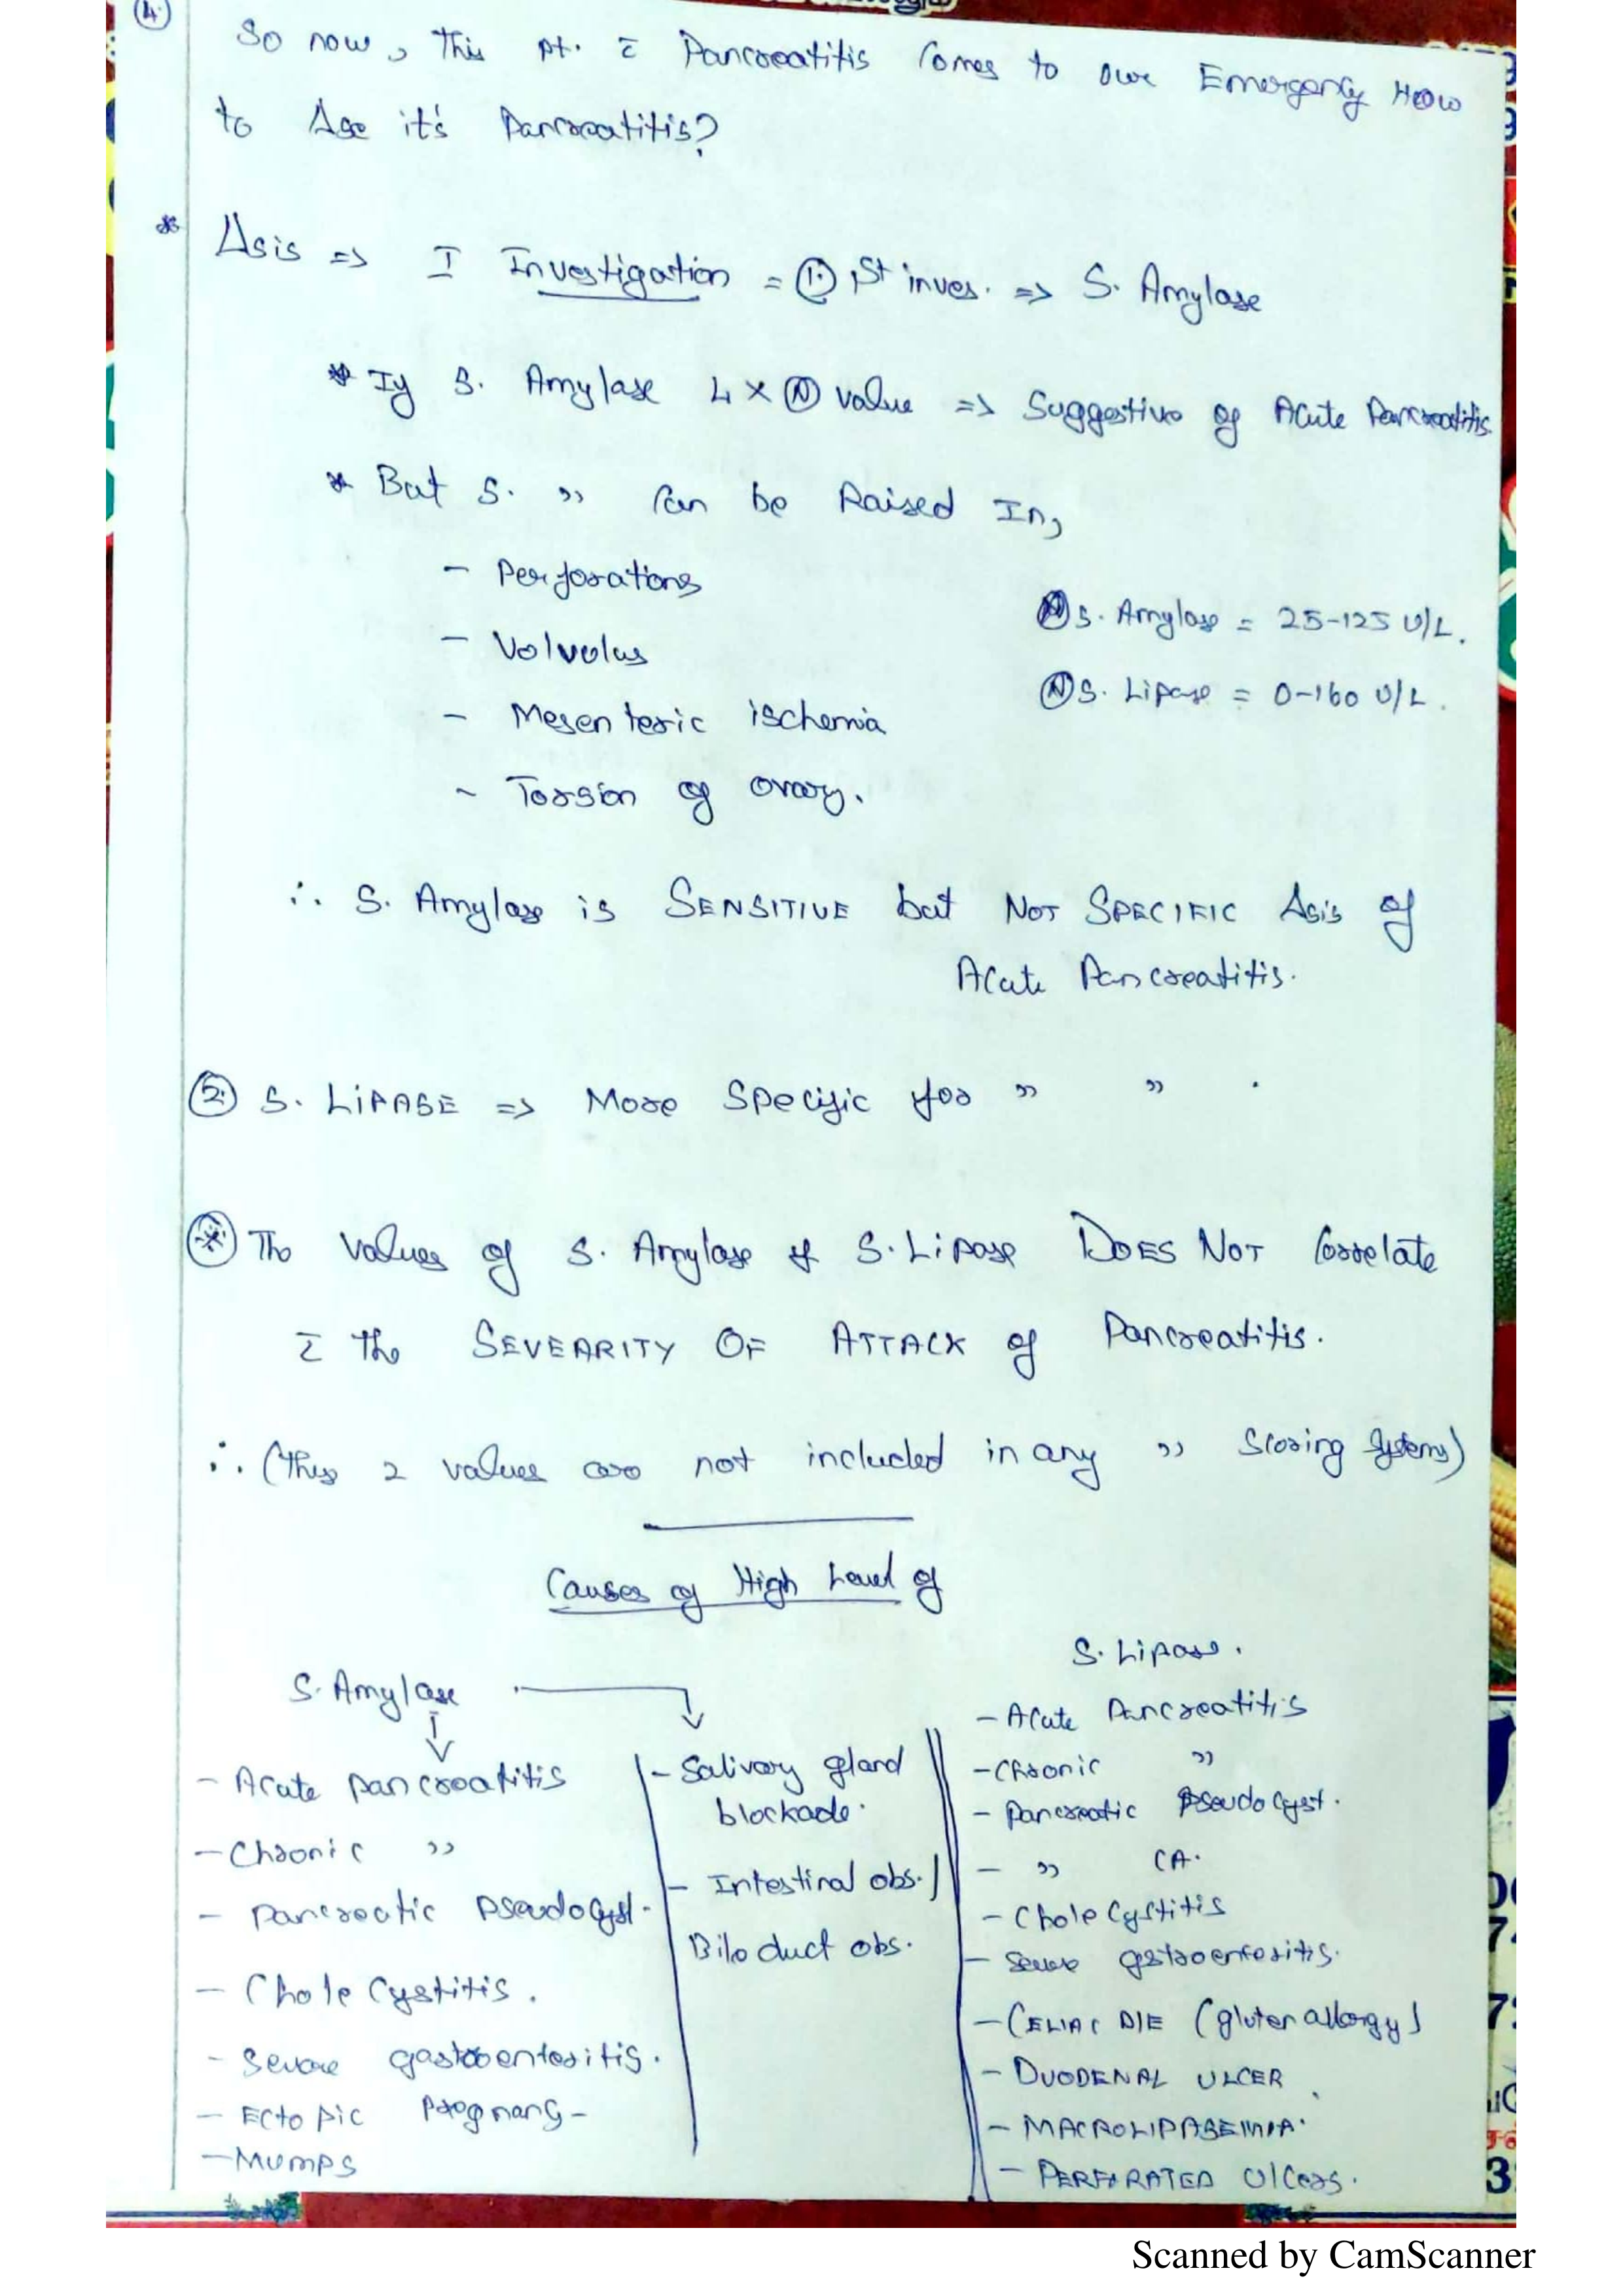 4.
So now, This pt. c̄ Pancreatitis Comes to our Emergency How
to Δse it's Pancreatitis?
* Δsis => I Investigation = ① 1st inves. => S. Amylase
* If S. Amylase 4 x Ⓝ value => Suggestive of Acute Pancreatitis.
* But S. " Can be Raised In,
- Perforations
- Volvolus
- Mesenteric ischemia
- Torsion of ovary.
Ⓝ S. Amylase = 25-125 U/L.
Ⓝ S. Lipase = 0-160 U/L.
∴ S. Amylase is SENSITIVE but NOT SPECIFIC Δsis of
Acute Pancreatitis.
② S. LIPASE => More Specific for " " .
* The Values of S. Amylase & S. Lipase DOES NOT Correlate
c̄ the SEVEARITY OF ATTACK of Pancreatitis.
∴ (This 2 values are not included in any " Scoring Systems)
Causes of High Level of
S. Amylase
- Acute pancreatitis
- Chronic "
- Pancreatic Pseudocyst.
- Cholecystitis.
- Severe gastroenteritis.
- Ectopic Pregnancy-
- Mumps
- Salivary gland
blockade.
- Intestinal obs./
Bile duct obs.
S. Lipase.
- Acute Pancreatitis
- Chronic "
- Pancreatic Pseudocyst.
- " CA.
- Cholecystitis
- Severe gastroenteritis.
- CELIAC DIE (gluten allergy)
- DUODENAL ULCER
- MACROLIPASEMIA.
- PERFORATED Ulcers.
Scanned by CamScanner